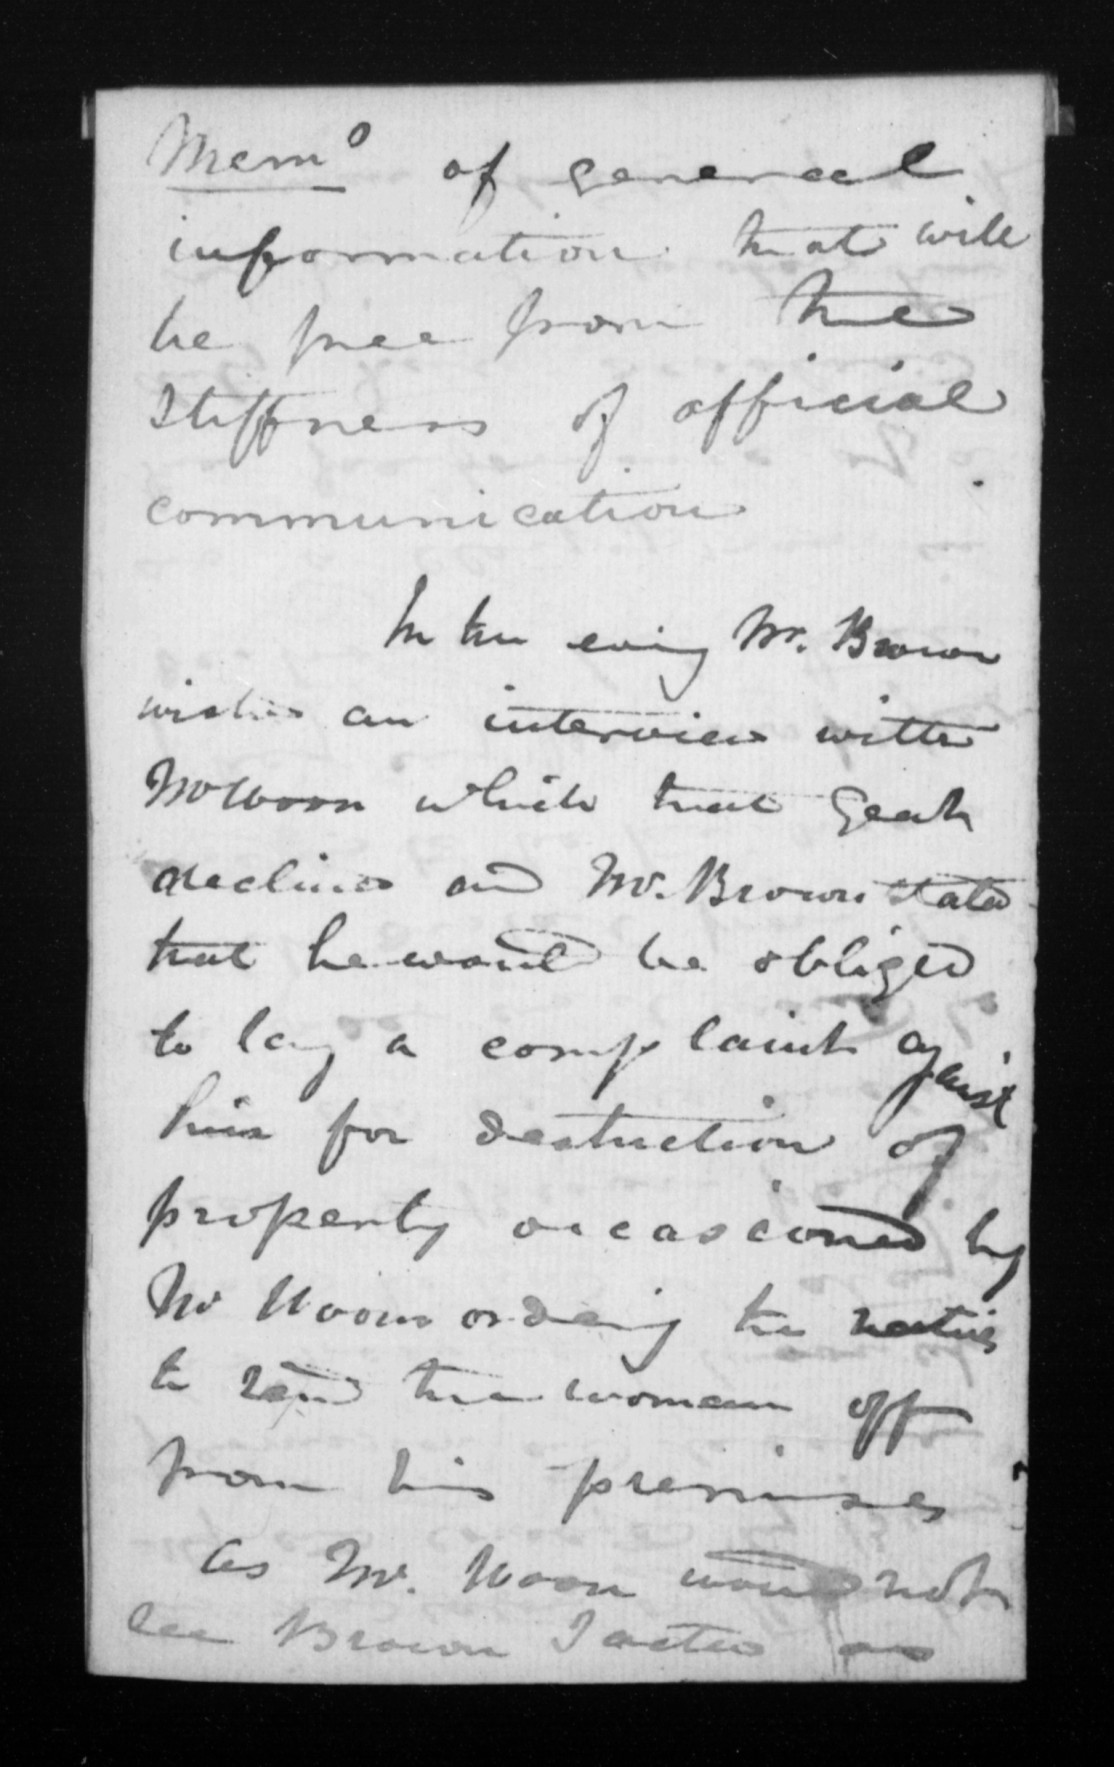 Memo of general
information that will
be free from the
stiffness of official
communication
In the eveing Mr. Brown
wishes an interview with
Mr Woon which that Gent
declines and Mr. Brown stated
that he would be obliged
to lay a complaint against
him for destruction of
property occasioned by
Mr Woon ordeing the natives
to send the woman off
from his premises
as Mr. Woon would not
see Brown I acted as